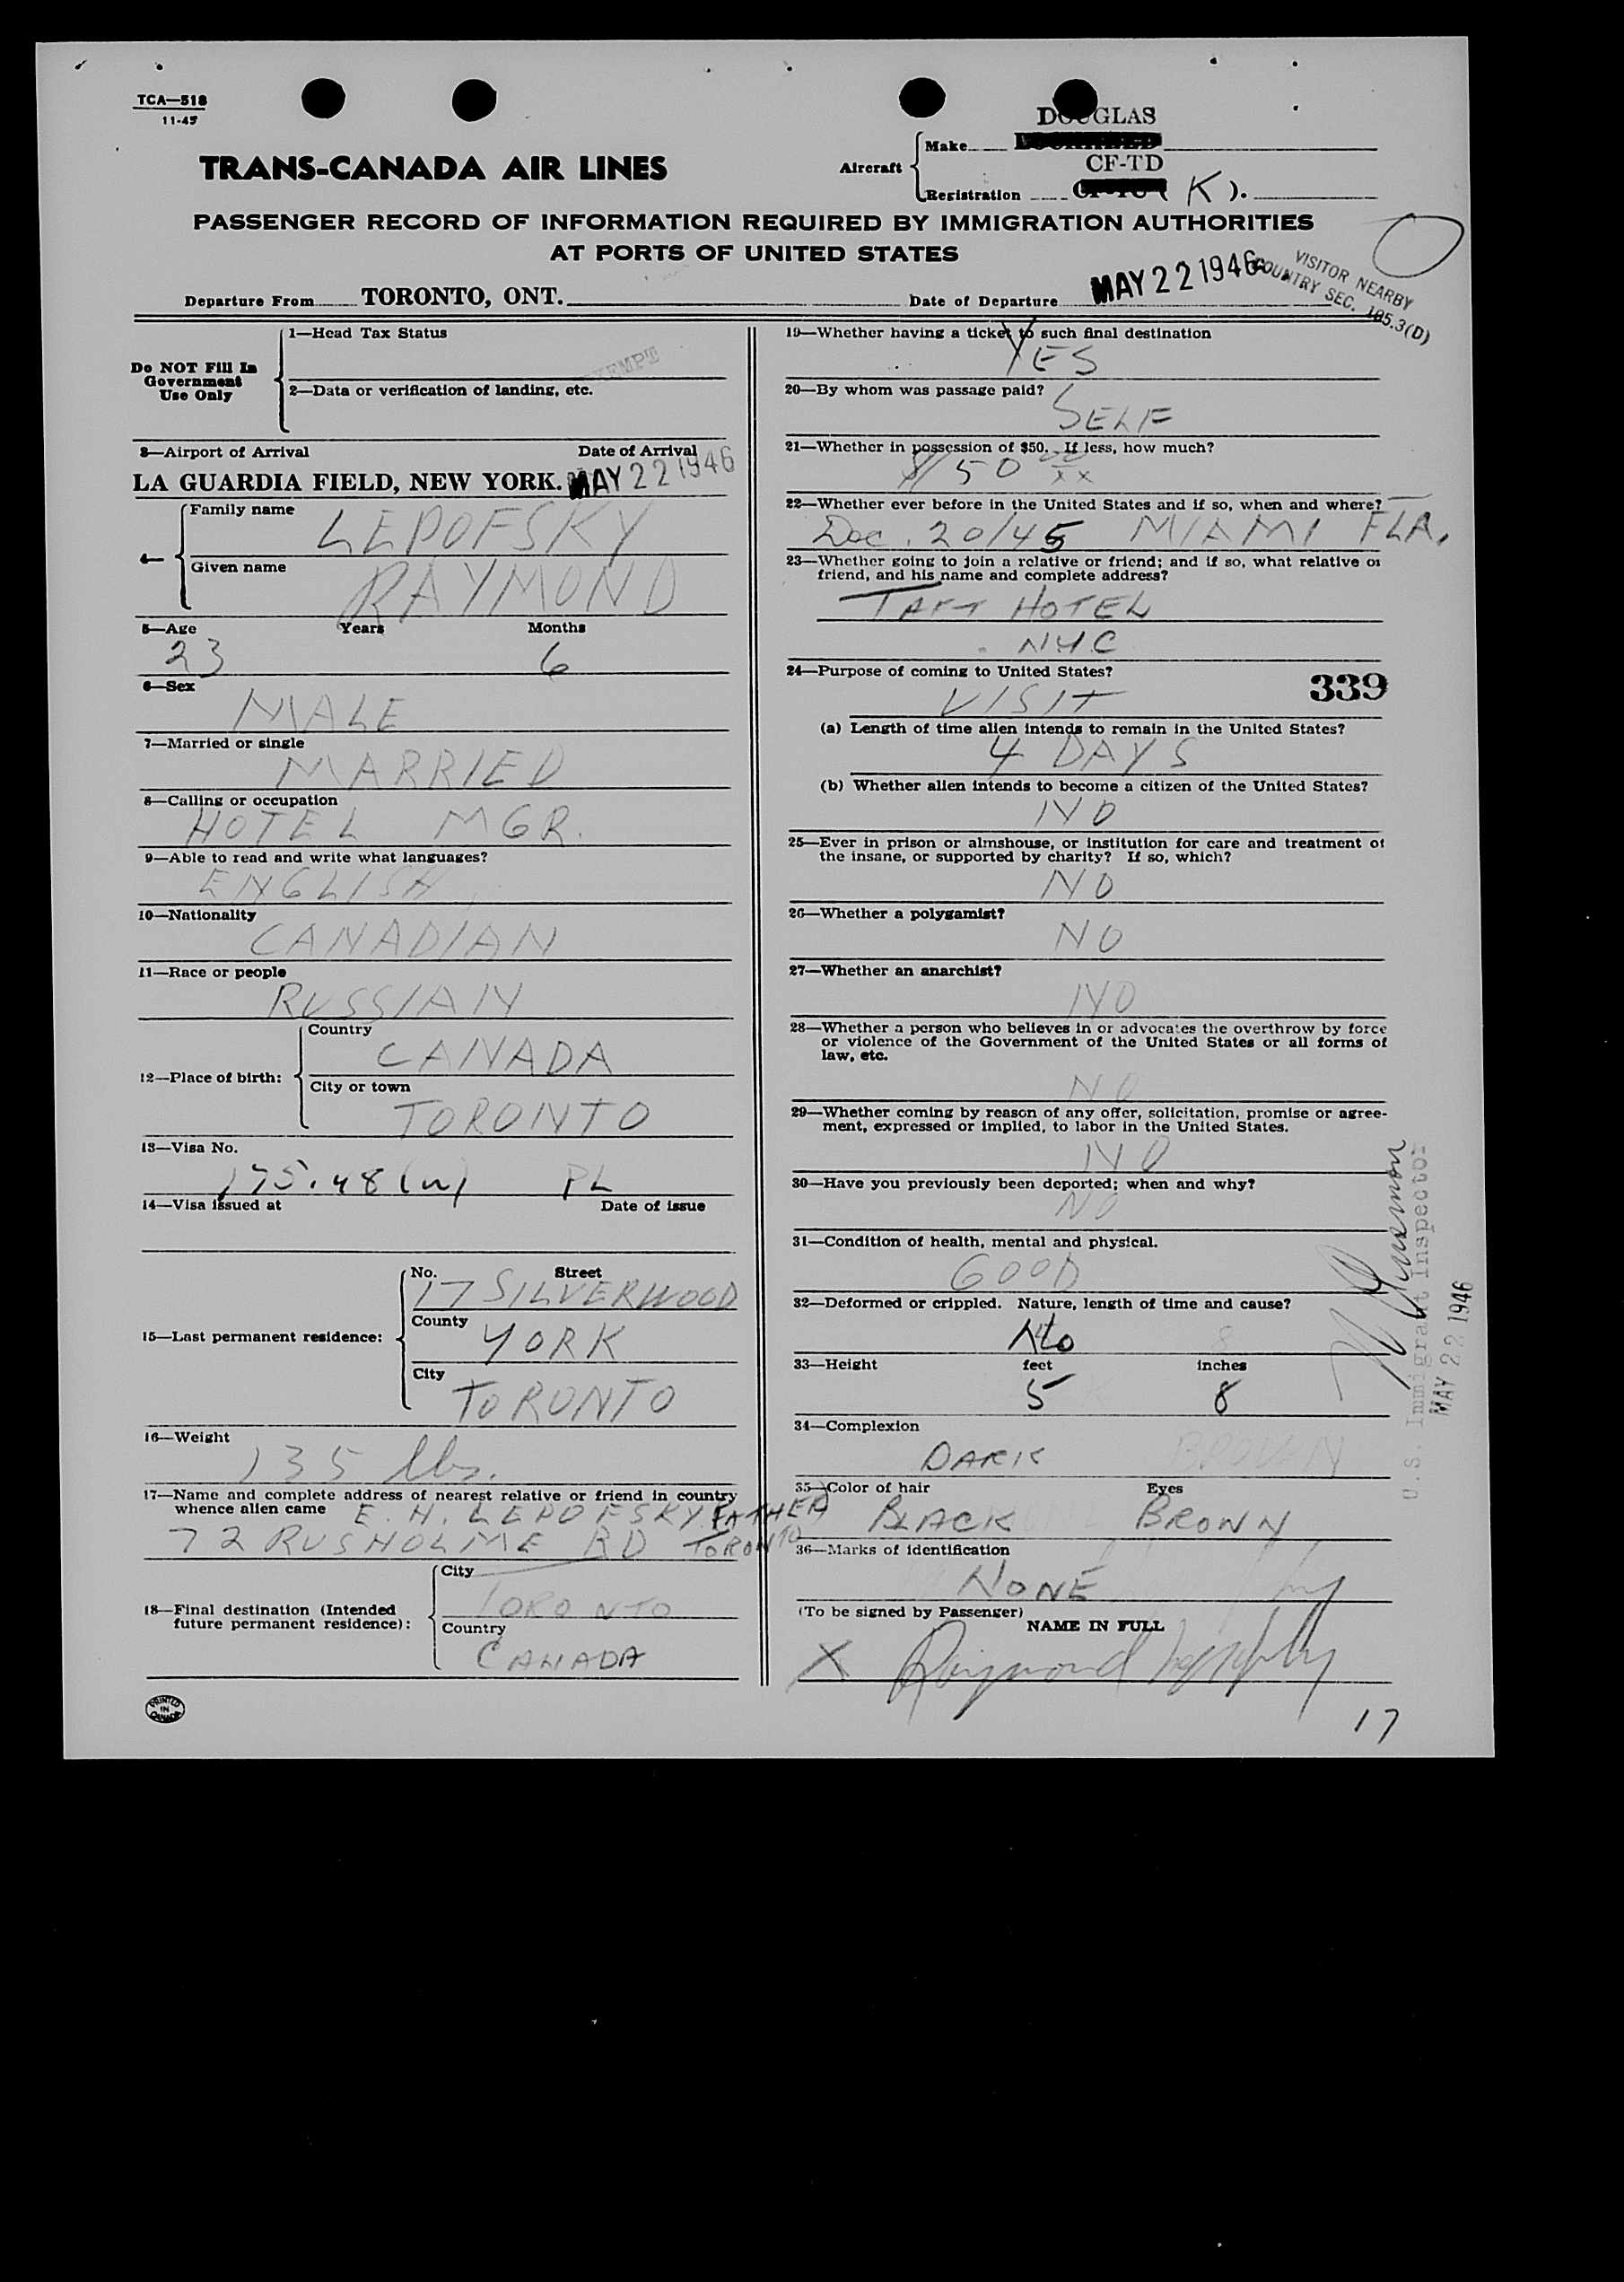 TCA—518
11-45
DOUGLAS
Aircraft
Make
CF-TD
Registration
( K ).
TRANS-CANADA AIR LINES
PASSENGER RECORD OF INFORMATION REQUIRED BY IMMIGRATION AUTHORITIES
AT PORTS OF UNITED STATES
VISITOR NEARBY
COUNTRY SEC. 105.3(D)
Departure From TORONTO, ONT. Date of Departure MAY 22 1946
Do NOT Fill In
Government
Use Only
1—Head Tax Status
EXEMPT
2—Data or verification of landing, etc.
3—Airport of Arrival Date of Arrival
LA GUARDIA FIELD, NEW YORK. MAY 22 1946
4—
Family name LEPOFSKY
Given name RAYMOND
5—Age Years Months
23 6
6—Sex
MALE
7—Married or single
MARRIED
8—Calling or occupation
HOTEL MGR.
9—Able to read and write what languages?
ENGLISH
10—Nationality
CANADIAN
11—Race or people
RUSSIAN
12—Place of birth:
Country
CANADA
City or town
TORONTO
13—Visa No.
175.48 (n) PL
14—Visa issued at Date of issue
15—Last permanent residence:
No. Street
17 SILVERWOOD
County
YORK
City
TORONTO
16—Weight
135 lbs.
17—Name and complete address of nearest relative or friend in country
whence alien came E. H. LEPOFSKY. FATHER
72 RUSHOLME RD TORONTO
18—Final destination (Intended
future permanent residence):
City
TORONTO
Country
CANADA
PRINTED
IN
CANADA
19—Whether having a ticket to such final destination
YES
20—By whom was passage paid?
SELF
21—Whether in possession of $50. If less, how much?
$150 00/xx
22—Whether ever before in the United States and if so, when and where?
Dec. 20/45 MIAMI FLA.
23—Whether going to join a relative or friend; and if so, what relative or
friend, and his name and complete address?
TAFT HOTEL
NYC
24—Purpose of coming to United States?
339
VISIT
(a) Length of time alien intends to remain in the United States?
4 DAYS
(b) Whether alien intends to become a citizen of the United States?
NO
25—Ever in prison or almshouse, or institution for care and treatment of
the insane, or supported by charity? If so, which?
NO
26—Whether a polygamist?
NO
27—Whether an anarchist?
NO
28—Whether a person who believes in or advocates the overthrow by force
or violence of the Government of the United States or all forms of
law, etc.
NO
29—Whether coming by reason of any offer, solicitation, promise or agree-
ment, expressed or implied, to labor in the United States.
NO
30—Have you previously been deported; when and why?
NO
31—Condition of health, mental and physical.
GOOD
32—Deformed or crippled. Nature, length of time and cause?
No
33—Height feet inches
5 8
34—Complexion
DARK
35—Color of hair Eyes
BLACK BROWN
36—Marks of identification
NONE
(To be signed by Passenger)
NAME IN FULL
X Raymond Lepofsky
17
U.S. Immigrant Inspector
MAY 22 1946